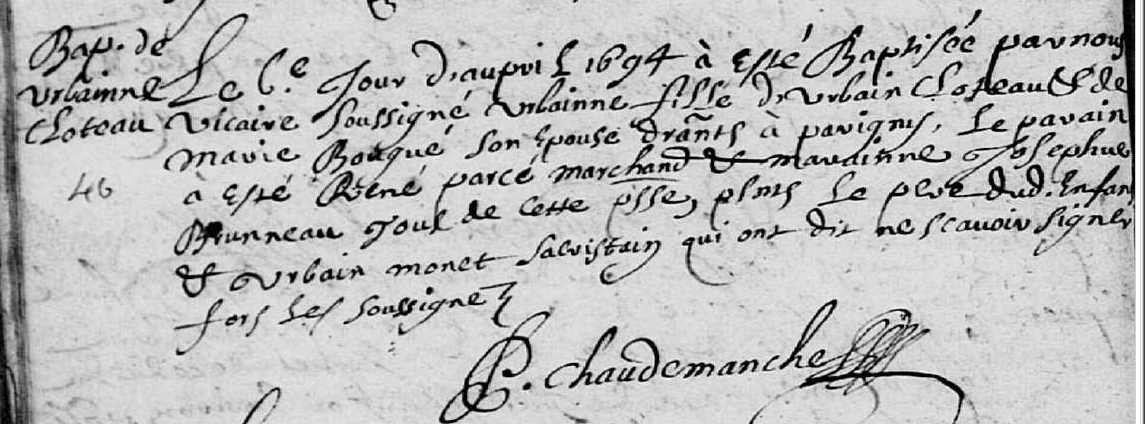 Bap. de
Urbainne
Cloteau
46
Le 6.e Jour d'auvril 1694 à Esté Baptisée par nous
Vicaire soussigné Urbainne fille d'Urbain Cloteau & de
Marie Bouqué son Epouse drants à pavignes, Le parain
à Esté René parcé marchand & maraisnne Josephue
Brunneau Tous de cette psse, pints Le pere dud. Enfan
& Urbain monet sacristain qui ont dit ne scavoir signer
fors Les soussignez
P. Chaudemanche